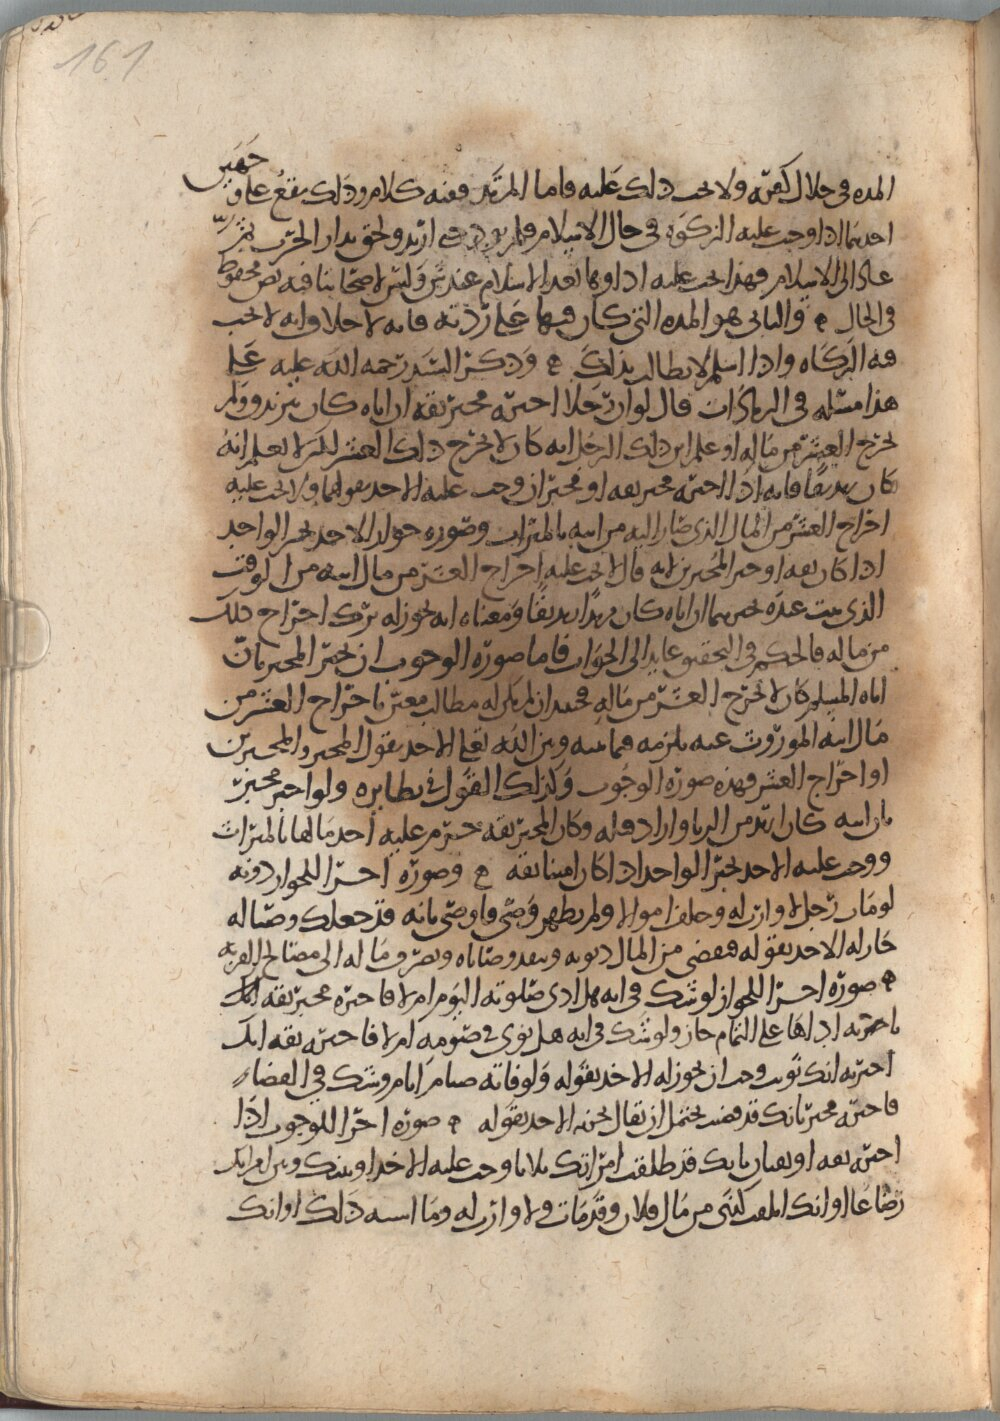 161
المده في حلال كفره ولا يجب ذلك عليه فاما المرتد ففيه كلام وذلك يقع على وجهين
احدهما اذا وجب عليه الزكوه في حال الاسلام فلم يود حتى ارتد ولحق بدار الحرب ثم
عاد الى الاسلام فهذا يجب عليه اداوها بعد الاسلام عند ش وليس لاصحابنا فيه نص محفوظ
في الحال ۞ والثاني هو المده التي كان فيها على ردته فانه لا خلاف انه لا تجب
فيه الزكاه واذا اسلم لا يطالب بذلك ۞ وذكر السيد رحمه الله عليه على
هذا مسئله في الزيادات قال لو ان رجلا اخبره مخبر ثقه ان اباه كان يتزندق ولم
يخرج العشر من ماله او علم ابن ذلك الرجل انه كان لا يخرج ذلك العشر لكن لا يعلم انه
كان زنديقا فانه اذا اخبره مخبر ثقه او مخبران وجب عليه الاخذ بقولهما ولا يجب عليه
اخراج العشر من المال الذي صار اليه من ابيه بالميراث وصوره جواز الاخذ بخبر الواحد
اذا كان ثقه او خبر المخبرين انه قال لا يجب عليه اخراج العشر من مال ابيه من الوقت
الذي يثبت عنده بخبرهما ان اباه كان زنديقا ومعناه انه يجوز له ترك اخراج ذلك
من ماله فالحكم في التحقيق عايد الى الجواب فاما صوره الوجوب ان يخبر المخبر بان
اباه المسلم كان لا يخرج العشر من ماله فحينئذ ان لم يكن له مطالب معين باخراج العشر من
مال ابيه الموروث عنه يلزمه فيما بينه وبين الله تعلى الاخذ بقول المخبر والمخبرين
او اخراج العشر فهذه صوره الوجوب وكذلك القول في نظايره ولو اخبر مخبر
بان ابنه كان ارتد من الربا واراد قتله وكان المخبر ثقه حرم عليه اخذ مالها بالميراث
ووجب عليه الاخذ بخبر الواحد اذا كان امينا ثقه ۞ وصوره اخرى للجواز دونه
لو مات رجل لا وارث له وخلف اموالا ولم يظهر وصي فاوصى بانه قد جعلك وصيا له
جاز له الاخذ بقوله فيقضي من المال ديونه وينفذ وصاياه ويصرف ماله الى مصالح القربه
۞ صوره اخرى للجواز لو شك في انه هل ادى صلوته اليوم ام لا فاخبره مخبر ثقه انك
اداها على التمام جاز ولو شك في انه هل نوى في صومه ام لا فاخبره ثقه انك
اخبرته انك نويت وجب ان يجوز له الاخذ بقوله ولو فاته صيام ايام وشك في القضاء
فاخبره مخبر بانك قد قضيت يحتمل ان يقال يجزيه الاخذ بقوله ۞ صوره اخرى للوجوب اذا
اخبره ثقه او ثقتان بانك قد طلقت امراتك ثلاثا وجب عليه الاخذ او بينك وبين امراتك
رضاعا او انك اتلفت كيتى من مال فلان وقد مات ولا وارث له وما انسيه ذلك او انك